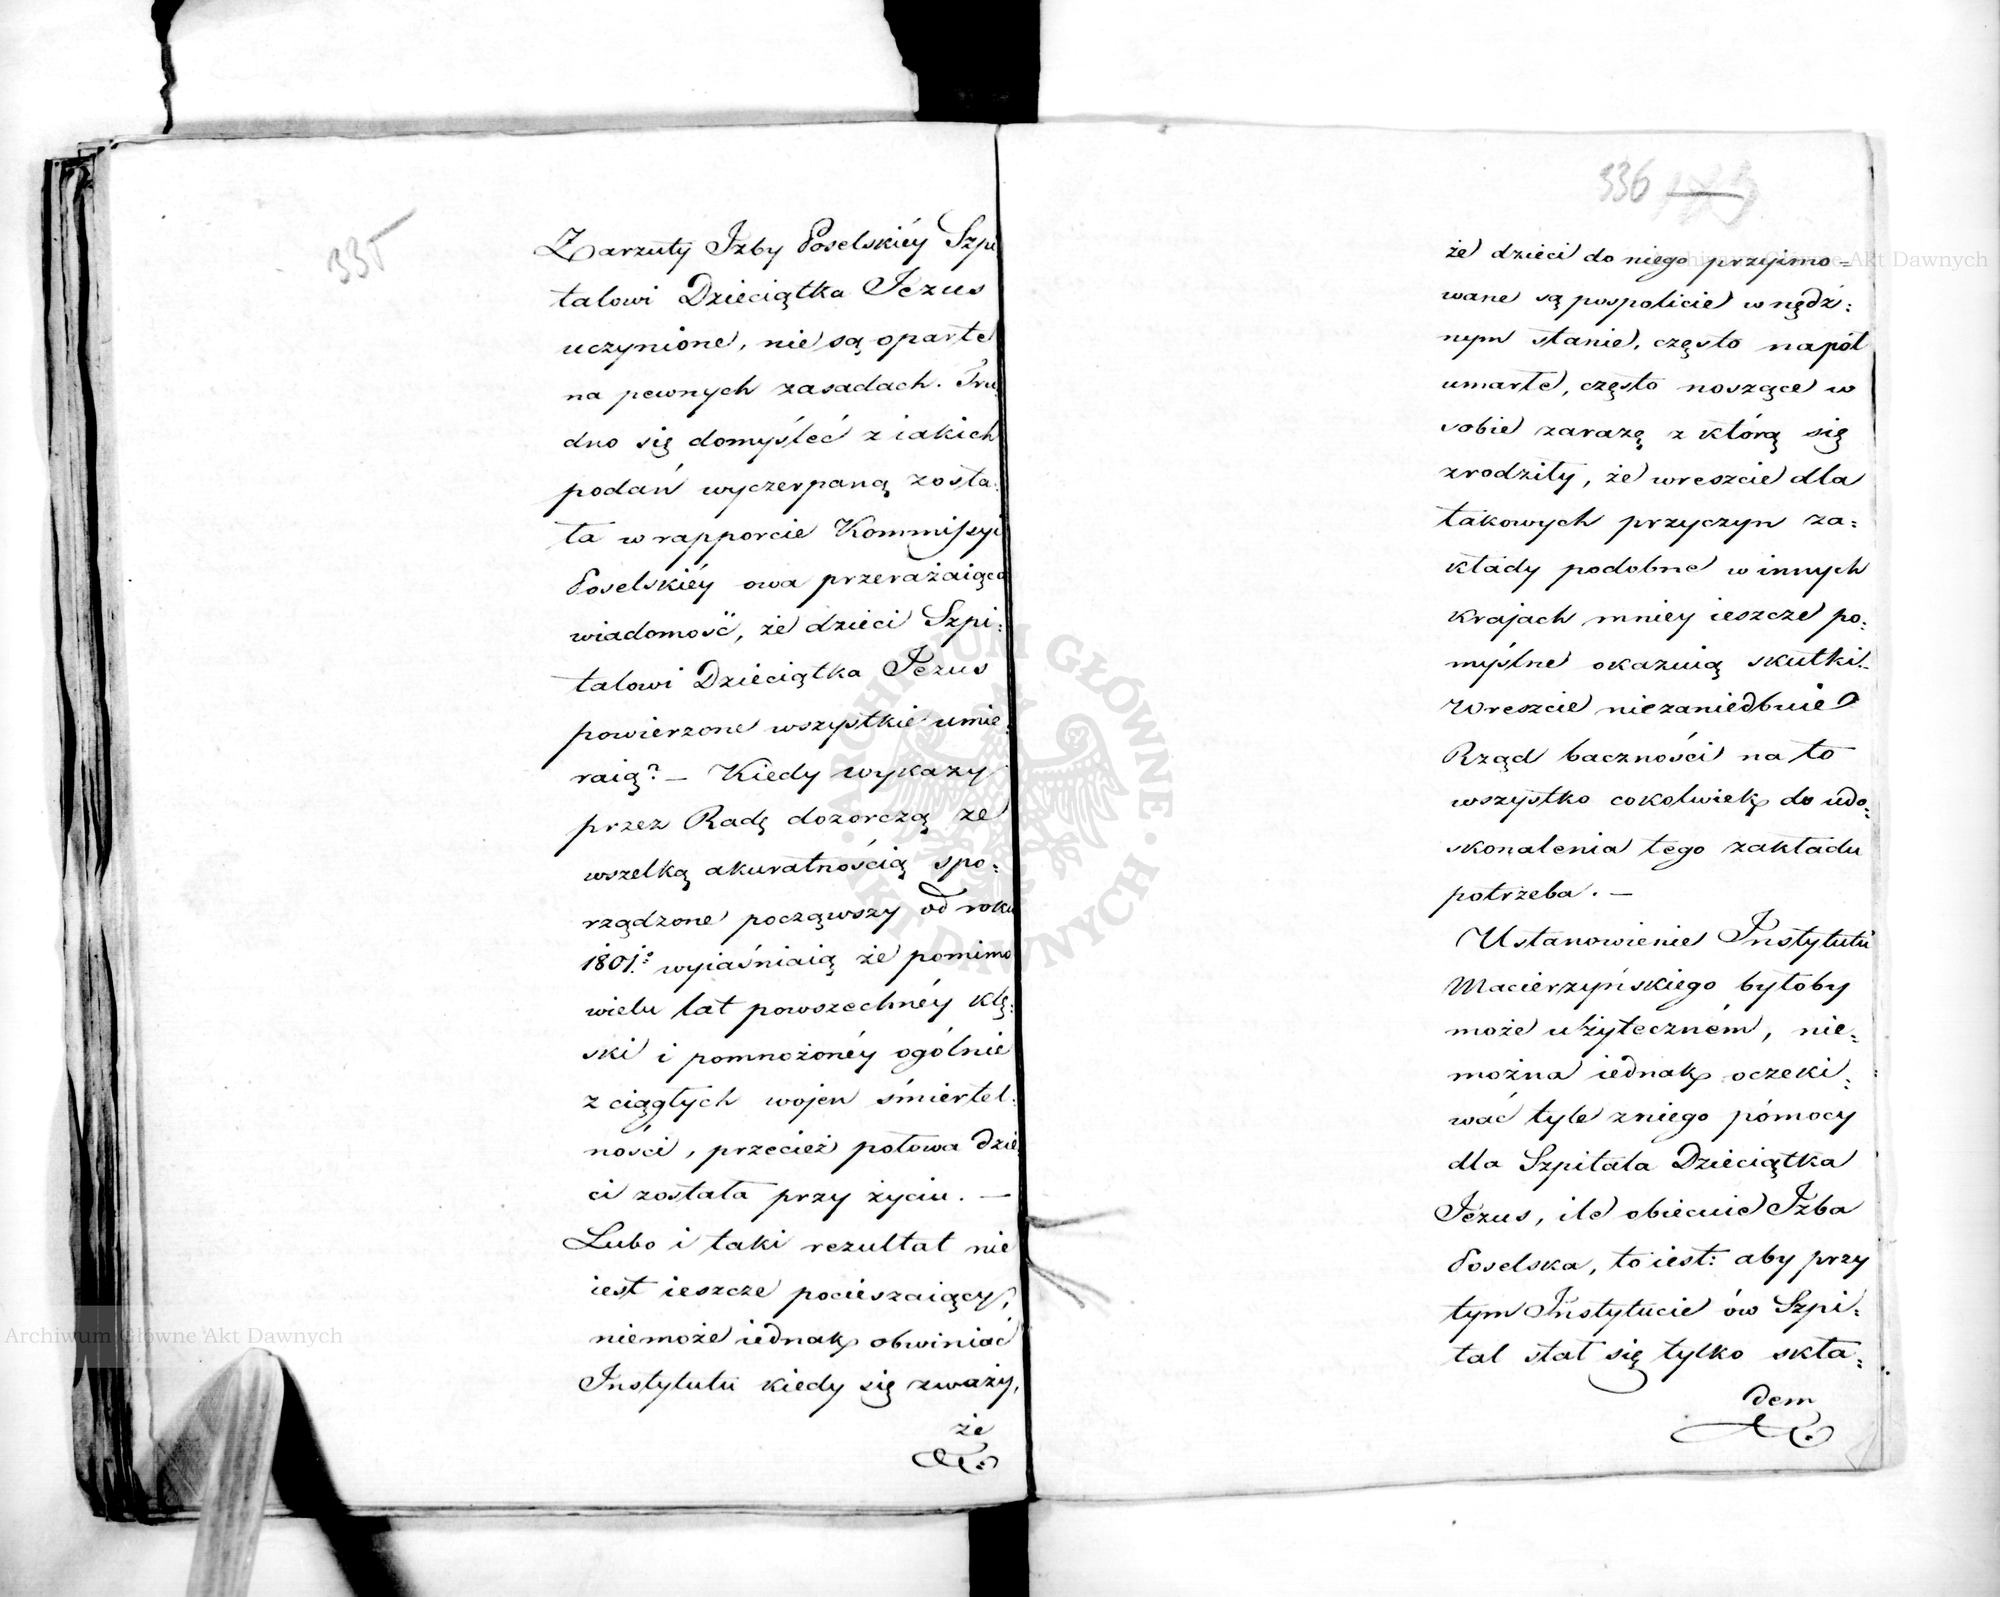 335
Zarzuty Izby Poselskiéy Szpi
talowi Dzieciątka Jezus
uczynione, nie są oparte
na pewnych zasadach. Tru:
dno się domyśleć z iakich
podań wyczerpaną zosta:
ła w rapporcie Kommissyi
Poselskiéy owa przerażaiąca
wiadomość, że dzieci Szpi:
talowi Dzieciątka Jezus
powierzone wszystkie umie:
raią? — Kiedy wykazy
przez Radę dozorczą ze
wszelką akuratnością spo:
rządzone począwszy od roku
1801: wyiaśniaią że pomimo
wielu lat powszechnéy klę:
ski i pomnożonéy ogólnie
z ciągłych wojen śmiertel:
ności, przecież połowa dzie
ci została przy życiu. —
Lubo i taki rezultat nie
iest ieszcze pocieszaiący,
niemoże iednak obwiniać
Instytutu kiedy się zważy,
że
336
że dzieci do niego przyimo=
wane są pospolicie w nędz:
nym stanie, często napół
umarłe, często noszące w
sobie zarazę z którą się
zrodziły, że wreszcie dla
takowych przyczyn za:
kłady podobne w innych
krajach mniey ieszcze po:
myślne okazuią skutki.
Wreszcie niezaniedbuie
Rząd baczności na to
wszystko cokolwiek do udo:
skonalenia tego zakładu
potrzeba. —
Ustanowienie Instytutu
Macierzyńskiego byłoby
może użyteczném, nie:
można iednak oczeki:
wać tyle z niego pómocy
dla Szpitala Dzieciątka
Jézus, ile obiecuie Izba
Poselska, to iest: aby przy
tym Instytucie ów Szpi:
tal stał się tylko skła:
dem
Archiwum Główne Akt Dawnych
Archiwum Główne Akt Dawnych
ARCHIWUM GŁÓWNE AKT DAWNYCH